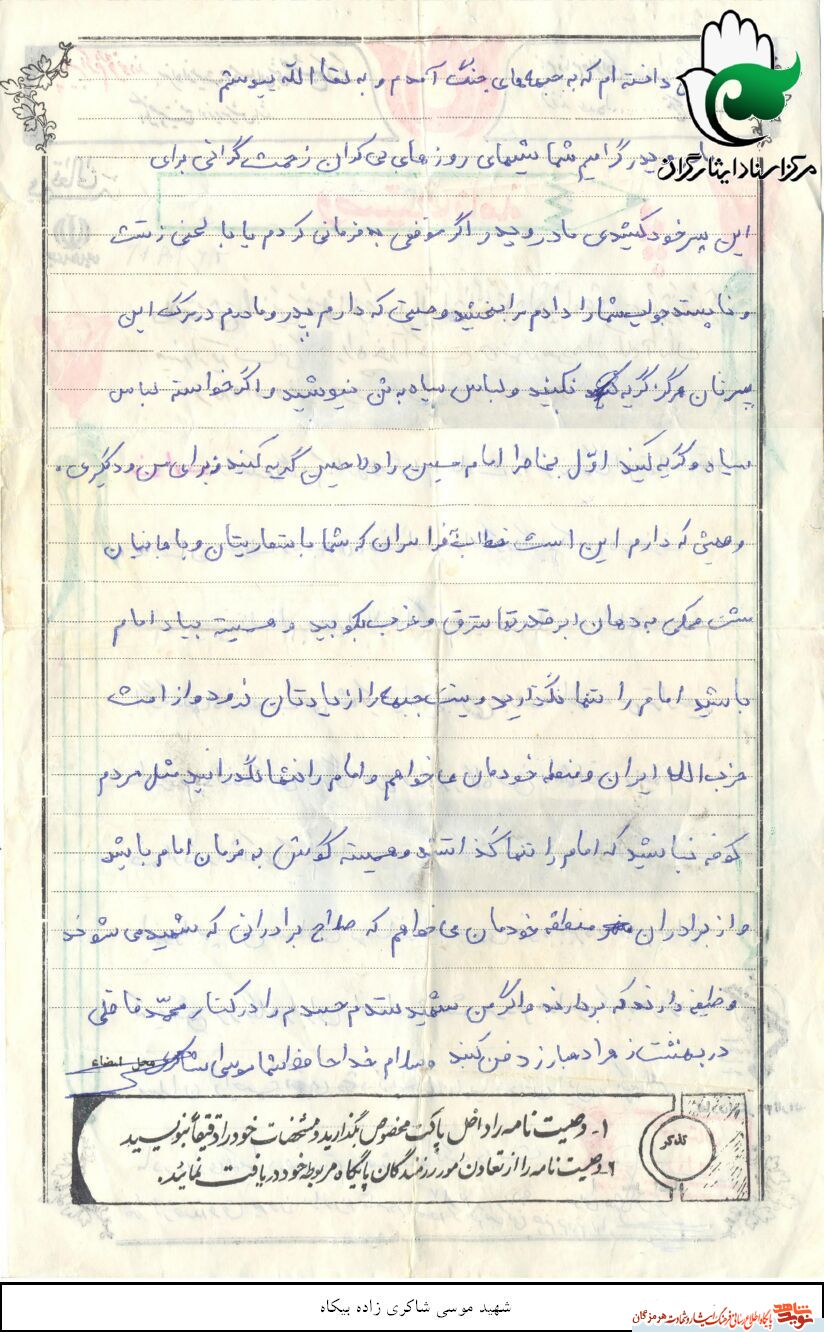 داشته ام که به جبهه های جنگ آمدم و به لقا الله پیوستم
مرکز اسناد ایثارگران
پدر گرامیم شما شبهای روزهای بی کران زحمت گرانی برای
این پسر خود کشیدی مادر و پدر اگر موقعی به فرمانی کردم یا با لحنی زشت
و ناپسند جواب شما را دادم مرا ببخشید وصیتی که دارم پدر و مادرم در مرگ این
پسرتان هرگز گریه نکنید و لباس سیاه به تن نپوشید و اگر خواسته لباس
سیاه و گریه کنید اوّل بخاطر امام حسین و گریه کنید نه برای من و دیگری.
وصیتی که دارم این است که شما با شعاریتان و با
مشت محکمی به دهان ابرقدرتها شرق و غرب بکوبید و همیشه بیاد امام
باشید امام را تنها نگذارید و پشت جبهه را از یادتان نرود و از امت
حزب الله ایران و منطقه خودمان می خواهم و امام را تنها نگذارنید مثل مردم
کوفه نباشید که امام را تنها گذاشتند و همیشه گوش به فرمان امام باشید
و از برادران منطقه خودمان می خواهم که صلاح برادرانی که شهید می شوند
وظیفه دارند که بردارند و اگر من شهید شدم جسدم را در کنار محمّد
در بهشت زهرا دفن کنند وسلام خداحافظ شما موسی شاکری
محل امضاء
تذکر
۱- وصیت نامه را داخل پاکت مخصوص بگذارید و مشخصات خود را دقیقاً بنویسید
۲- وصیت نامه را از تعاون امور رزمندگان پایگاه مربوطه خود دریافت نمائید.
شهید موسی شاکری زاده بیکاه
نوید شاهد
پایگاه اطلاع رسانی فرهنگ ایثار و شهادت هرمزگان